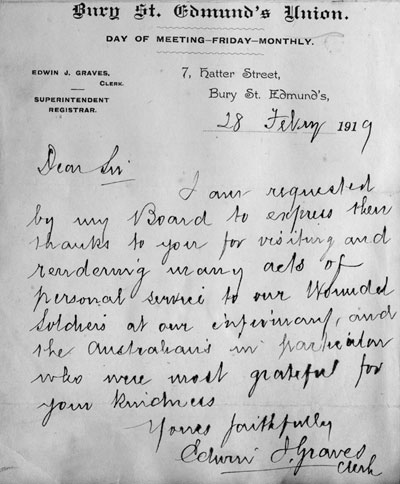 Bury St. Edmund's Union.
DAY OF MEETING—FRIDAY—MONTHLY.
EDWIN J. GRAVES,
CLERK.
SUPERINTENDENT
REGISTRAR.
7, Hatter Street,
Bury St. Edmund's,
28 Febry 1919
Dear Sir
I am requested
by my Board to express their
thanks to you for visiting and
rendering many acts of
personal service to our Wounded
Soldiers at our infirmary, and
the Australians in particular
who were most grateful for
your kindness
Yours faithfully
Edwin J. Graves
Clerk